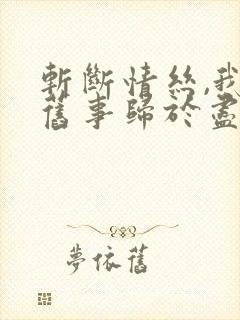 斬斷情絲,我
舊事歸於盡
夢依舊